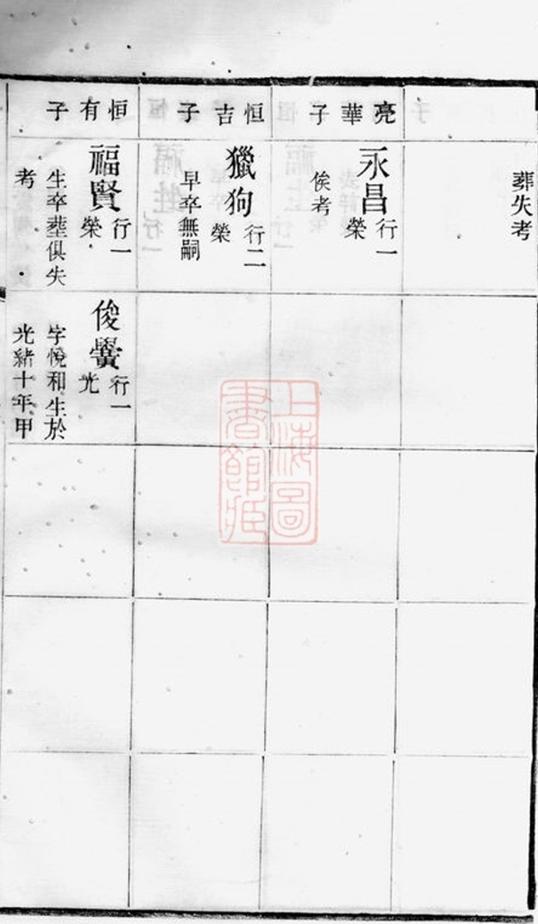 葬失考
亮華子
永昌
行一
榮
俟考
恒吉子
獵狗
行二
榮
早卒無嗣
恒有子
福賢
行一
榮
生卒葬俱失
考
俊黌
行一
光
字悅和生於
光緒十年甲
上海圖
書館藏